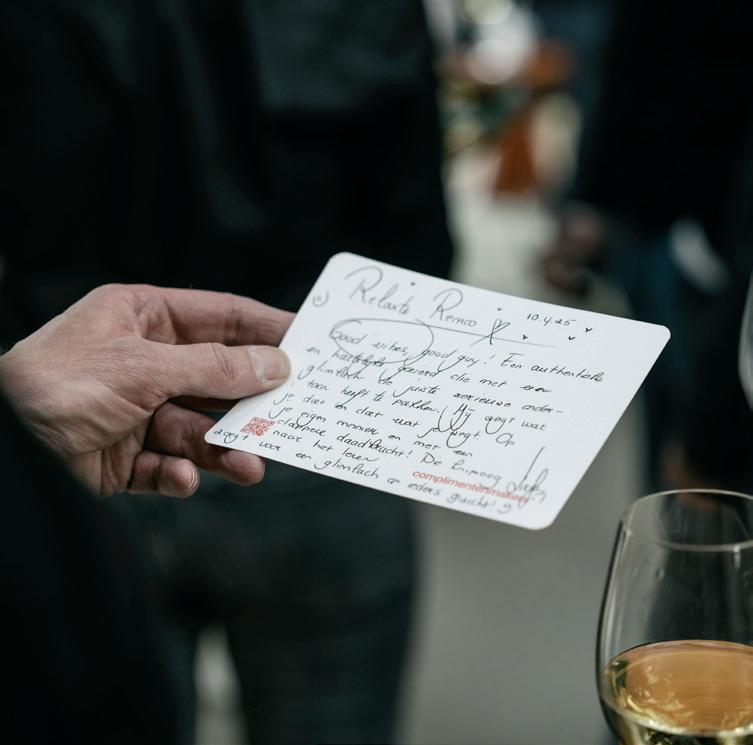 Relaxte Remco
10.4.25
Good vibes, good guy! Een authentieke
en hartelijke die met een
glimlach de juiste serieuze onder-
toon heeft te pakken! Hij zegt wat
je dat en dat wat je zegt Op
je eigen manier en met een
dappere daadkracht! De knipoog
naar het leven
zorgt voor een glimlach op ieders gezicht!
complimentenmakers